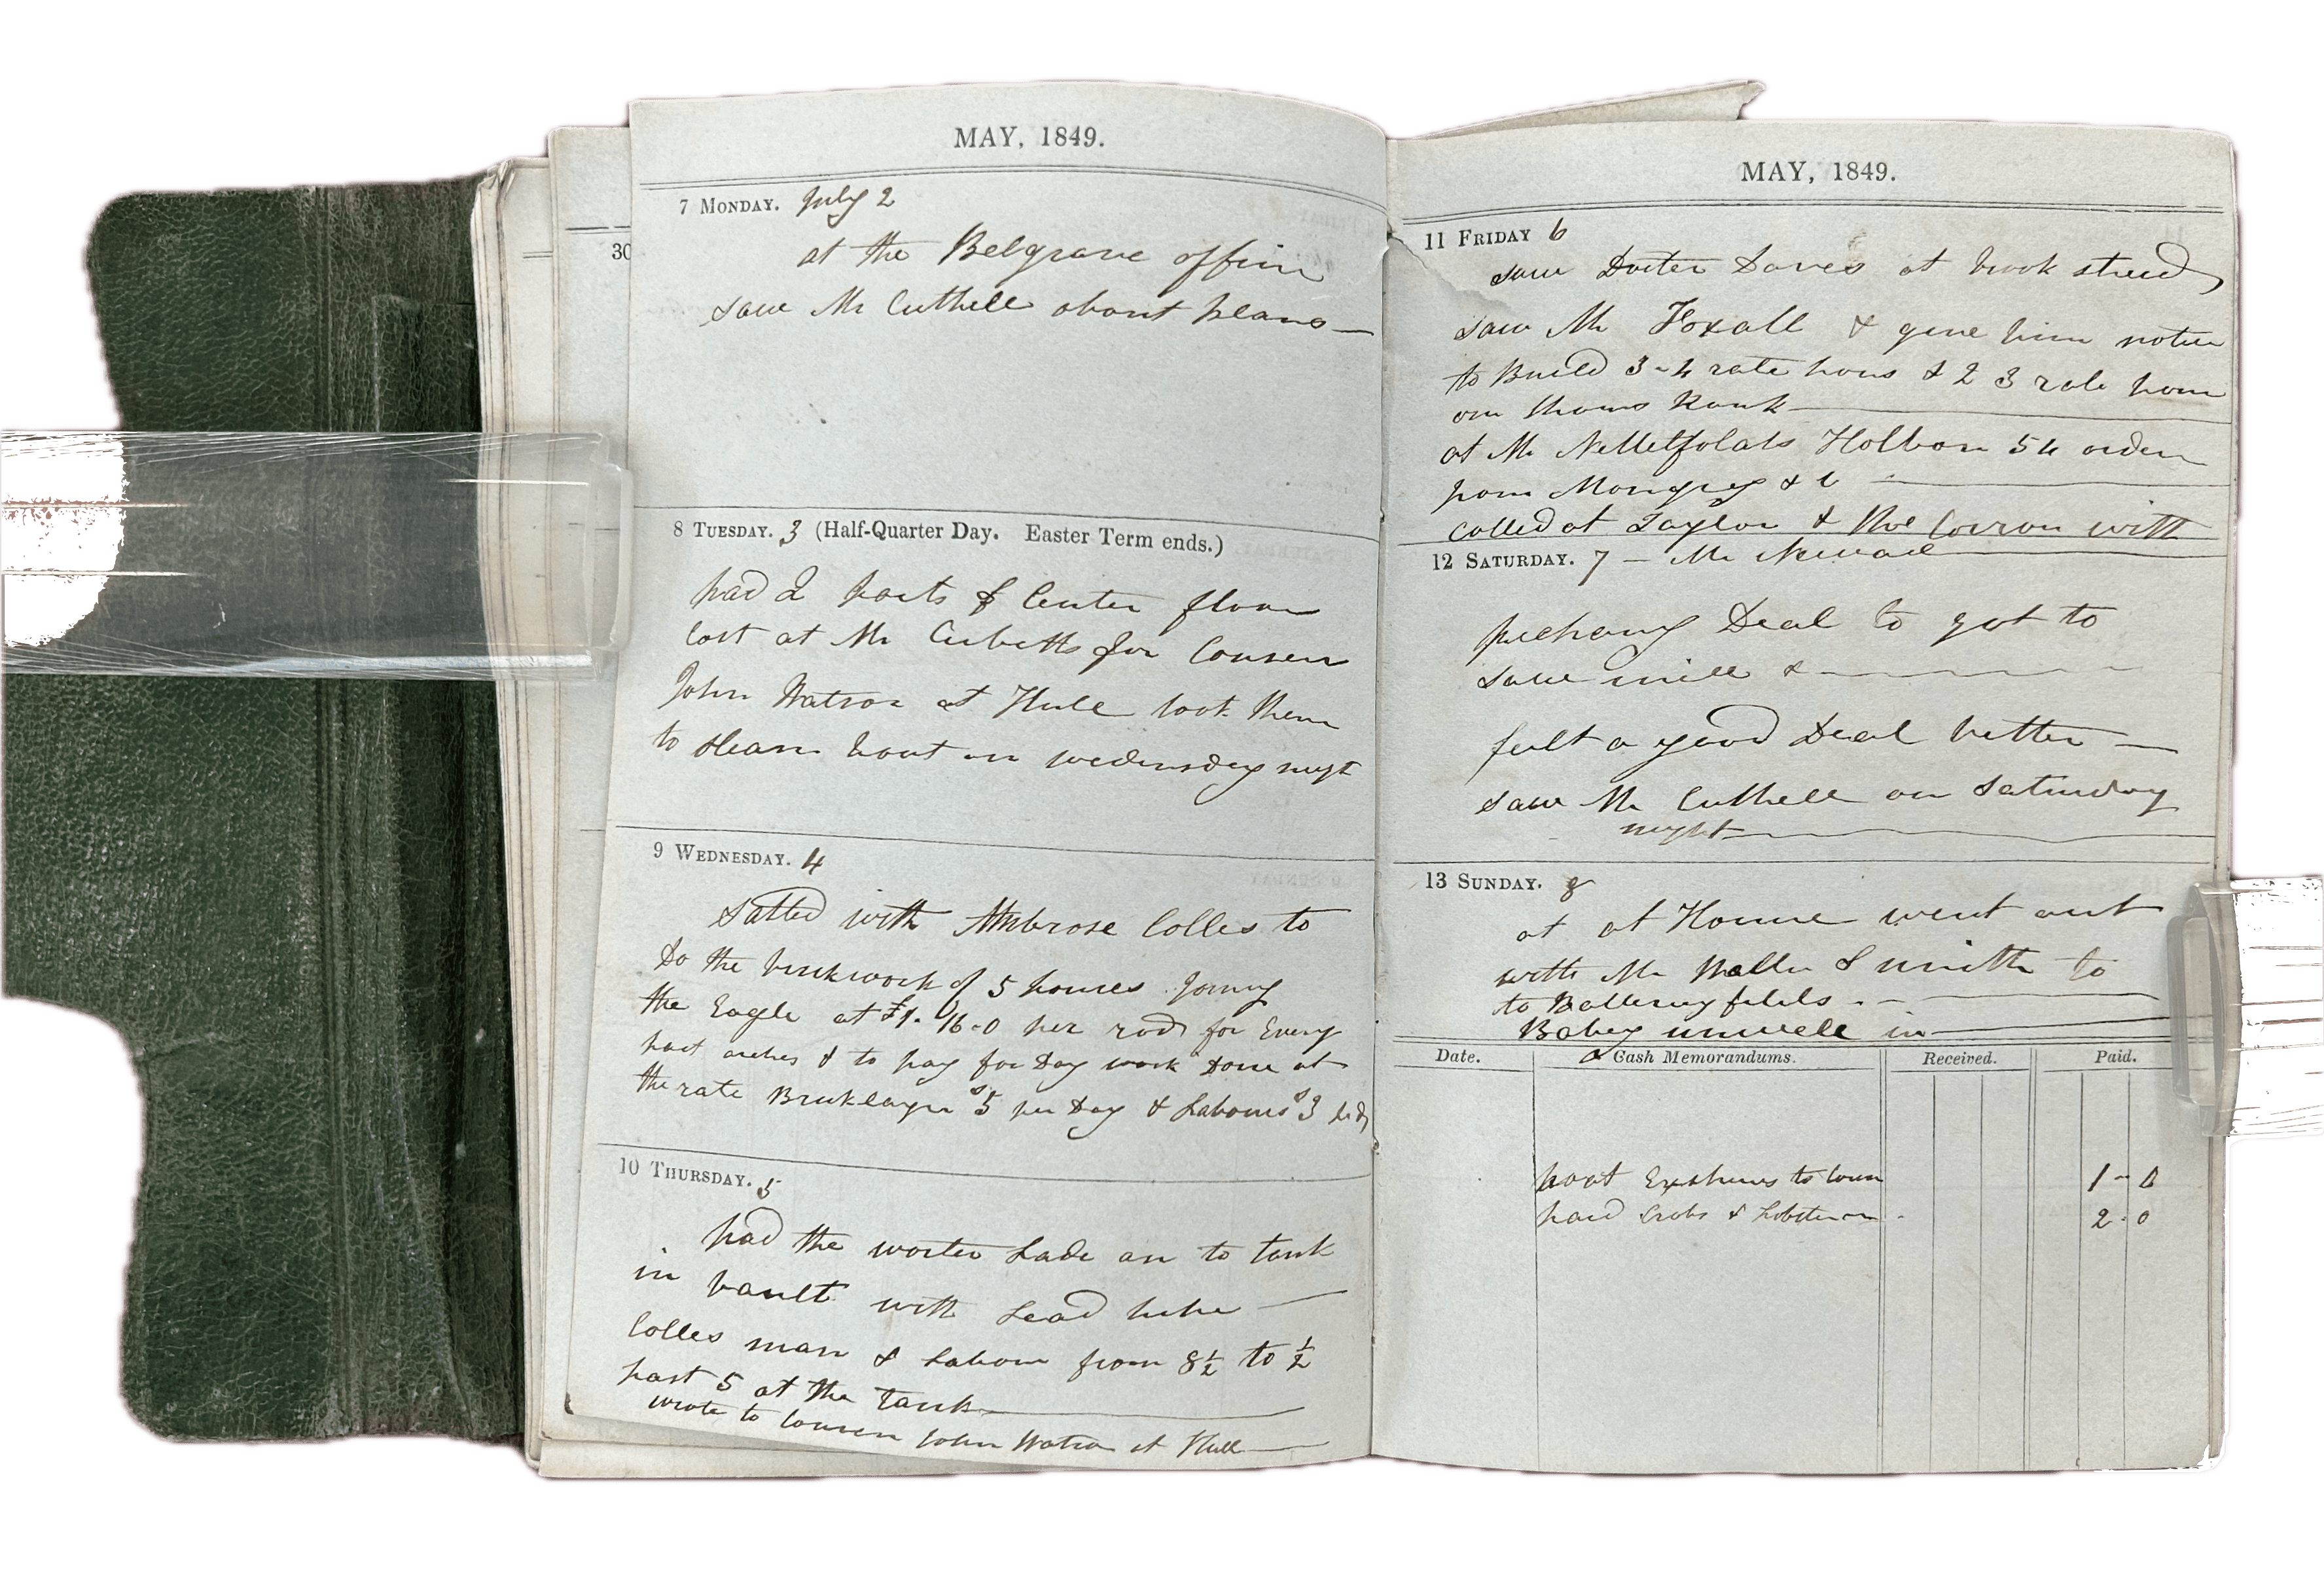 30
MAY, 1849.
7 MONDAY. July 2
at the Belgrave office
saw Mr Cuthell about plans —
8 TUESDAY. 3 (Half-Quarter Day. Easter Term ends.)
had 2 parts of Center floor
cost at Mr Cubetts for Cousen
John Watson at Hull took them
to steam bout on wednesday nigt
9 WEDNESDAY. 4
Satled with Ambrose Colles to
Do the brickwork of 5 houses Joning
the Eagle at £9. 16-0 per rod for Every
part arches & to pay for Day work Done at
the rate Bricklayer s5 per Day & Labours s3 p d
10 THURSDAY. 5
had the worter Lade on to tank
in vault with Lead pipe —
Colles man & Labour from 8½ to ½
past 5 at the Tank —
wrote to Cousen John Watson at Hull —
MAY, 1849.
11 FRIDAY 6
saw Docter Daves at brook streed
saw Mr Foxall & give him notice
to Build 3-4 rate hous & 2 3 rate hous
on Thoms Bank —
at Mr Nettelfolds Holbon 54 orden
from &
Called at Taylor & the with
12 SATURDAY. 7 — Mr Newall
Deal to got to
saw mill & —
felt a good Deal better —
saw Mr Cuthell on Saturday
nyght —
13 SUNDAY. 8
at at Home went out
with Mr Waller & smith to
to Battersey fields . —
Bobey unwell in —
Date. Cash Memorandums. Received. Paid.
to town 1 - 6
paid Crabs & Lobster 2 . 0